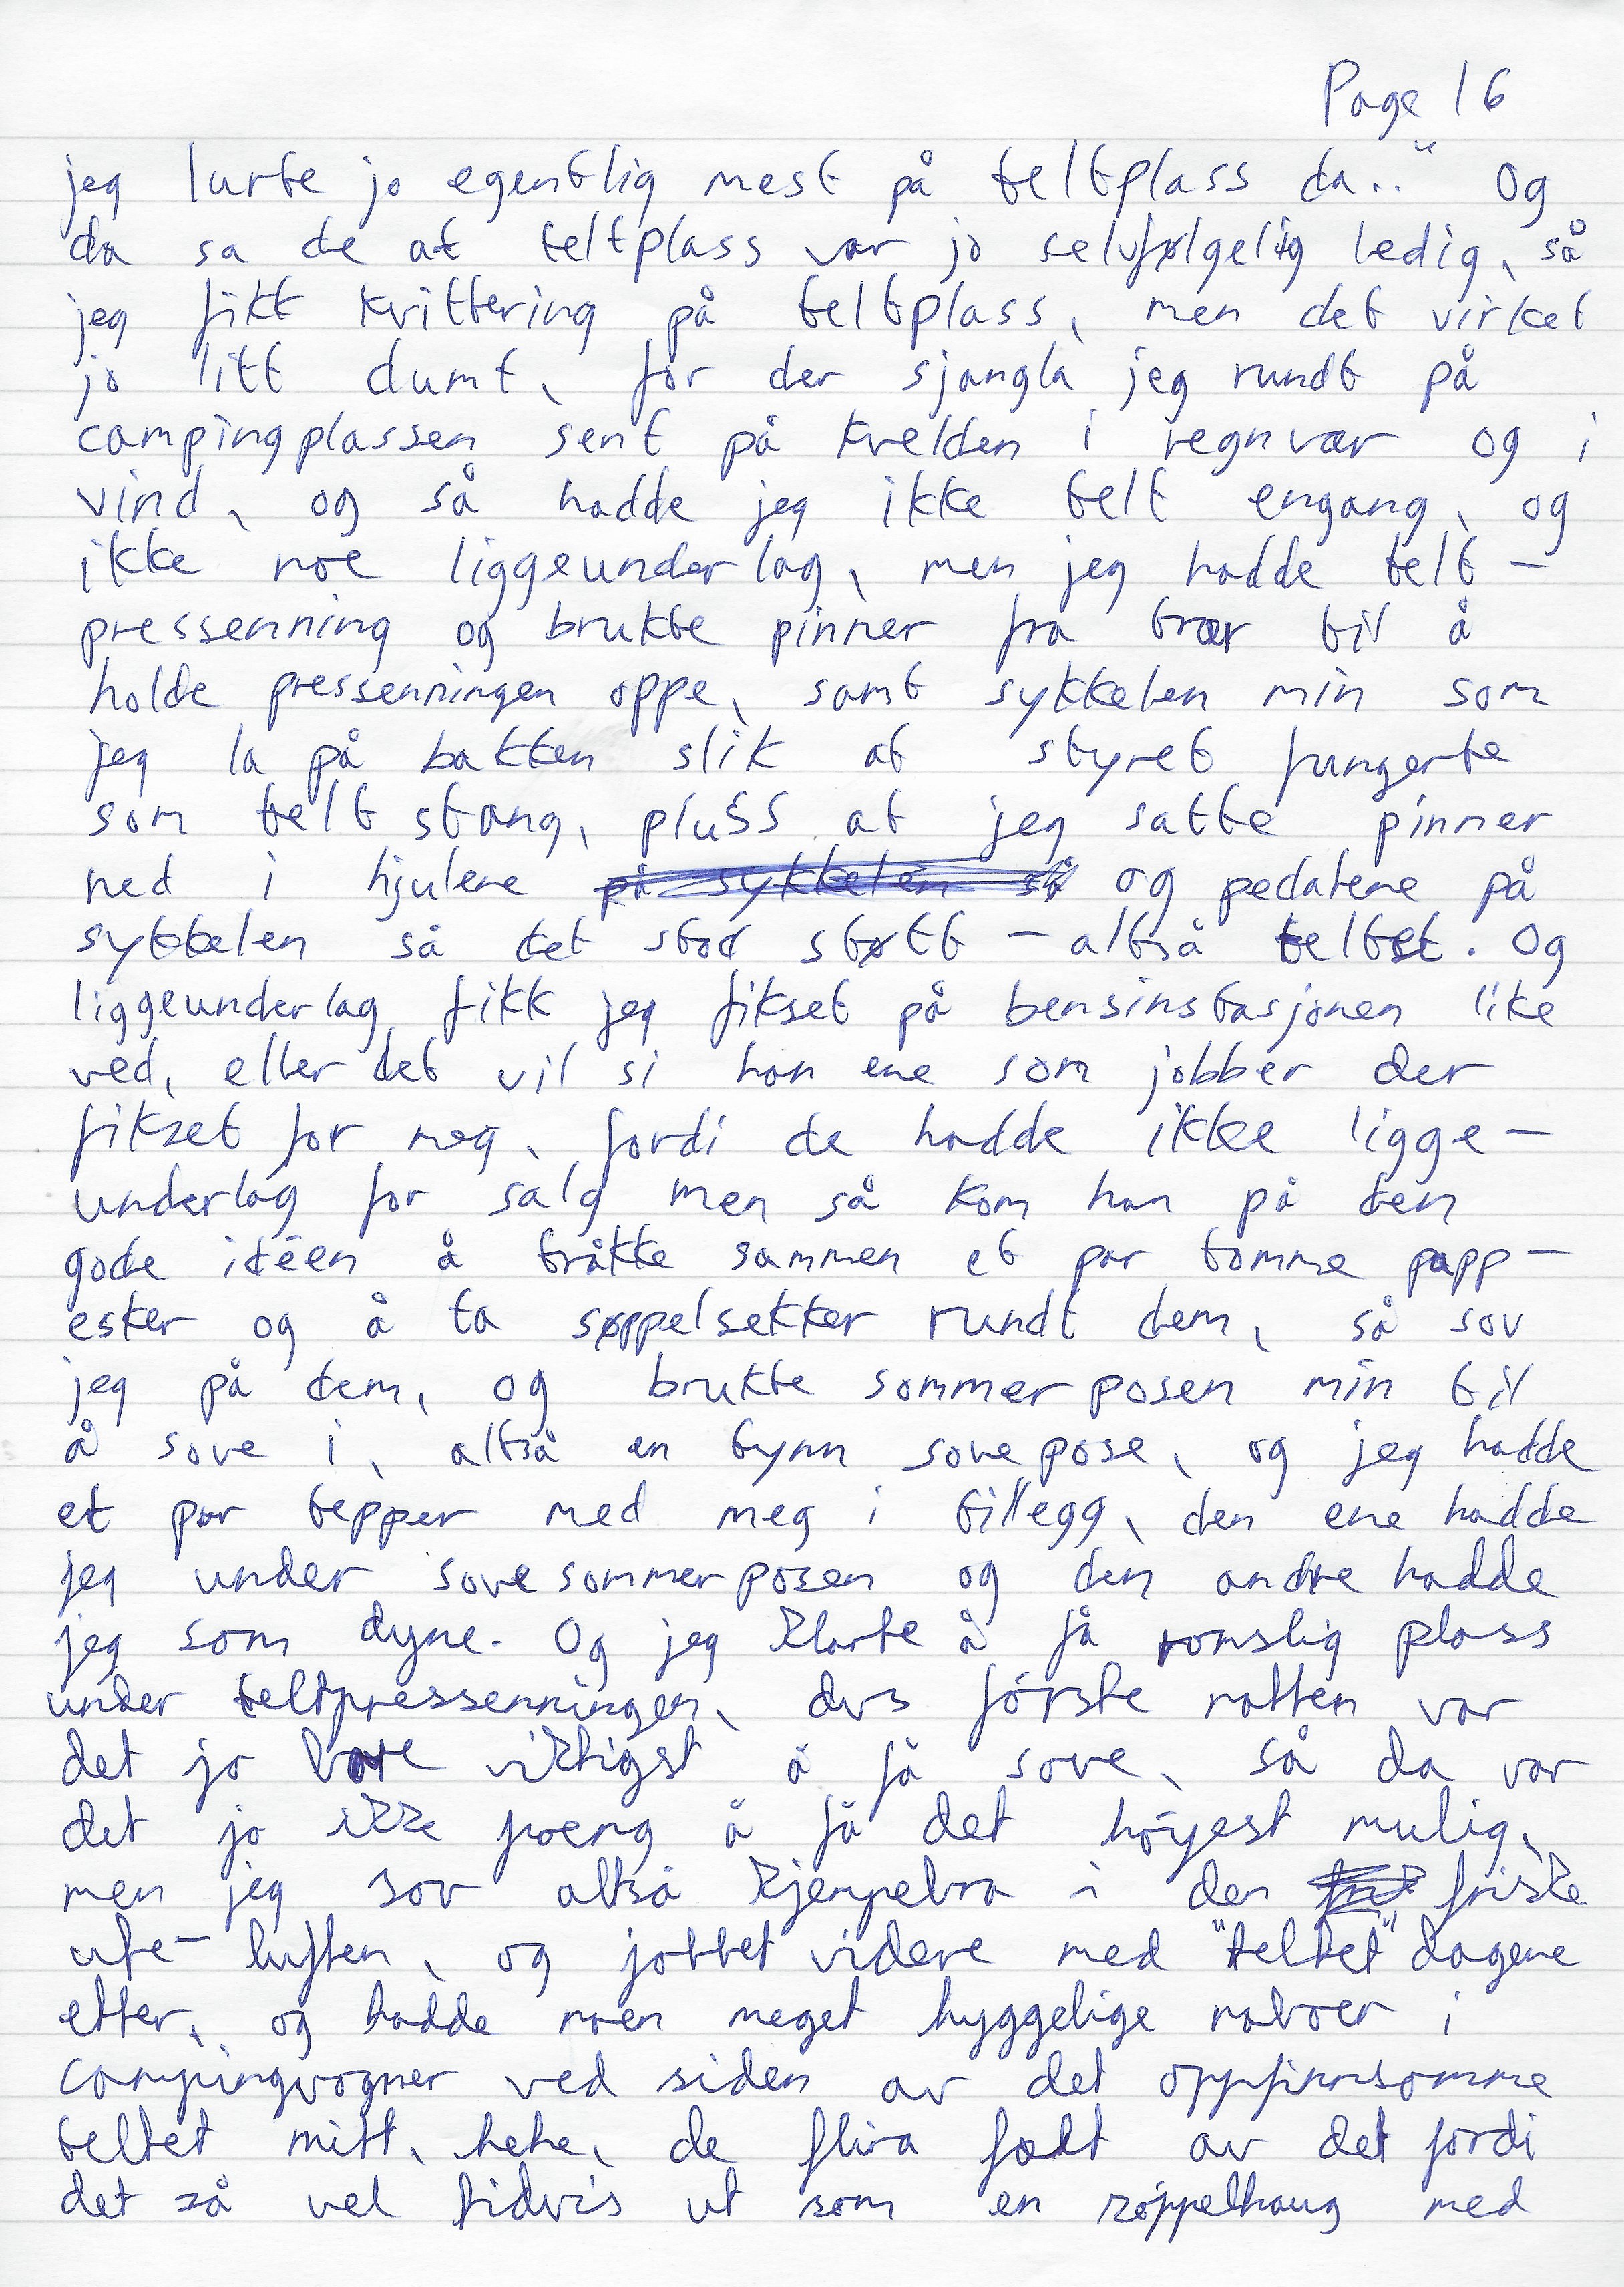 Page 16
jeg lurte jo egentlig mest på teltplass da.." Og
da sa de at teltplass var jo selvfølgelig ledig, så
jeg fikk kvittering på teltplass, men det virket
jo litt dumt, for der sjangla jeg rundt på
campingplassen sent på kvelden i regnvær og i
vind, og så hadde jeg ikke telt engang, og
ikke noe liggeunderlag, men jeg hadde telt-
pressenning og brukte pinner fra trær til å
holde pressenningen oppe, samt sykkelen min som
jeg la på bakken slik at styret fungerte
som telt stang, pluss at jeg satte pinner
ned i hjulene på sykkelen så og pedalene på
sykkelen så det stod støtt - altså teltet. Og
liggeunderlag fikk jeg fikset på bensinstasjonen like
ved, eller det vil si han ene som jobber der
fikset for meg, fordi de hadde ikke ligge-
underlag for salg men så kom han på den
gode idéen å tråkke sammen et par tomme papp-
esker og å ta søppelsekker rundt dem, så sov
jeg på dem, og brukte sommerposen min til
å sove i, altså en tynn sovepose, og jeg hadde
et par tepper med meg i tillegg, den ene hadde
jeg under sovesommerposen og den andre hadde
jeg som dyne. Og jeg klarte å få romslig plass
under teltpressenningen, dvs første natten var
det jo bare viktigst å få sove, så da var
det jo ikke poeng å få det høyest mulig,
men jeg sov altså kjempebra i den friske
ute-luften, og jobbet videre med "teltet" dagene
etter, og hadde noen meget hyggelige naboer i
campingvogner ved siden av det oppfinnsomme
teltet mitt, hehe, de flira fælt av det fordi
det så vel tidvis ut som en søppelhaug med